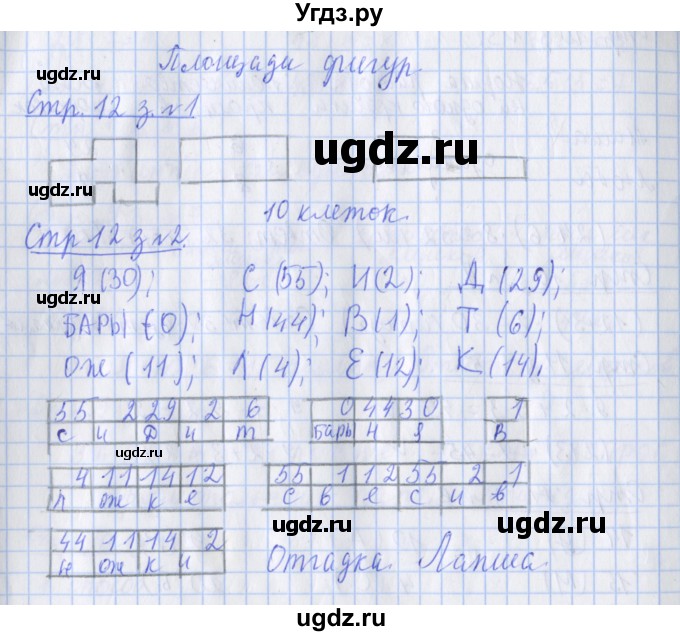 Угдз.ру
ugdz.ru
Площади фигур.
ugdz.ru
Стр. 12 з. №1
ugdz.ru
ugdz.ru
10 клеток.
Стр 12 з №2.
Я (30); С (55); И (2); Д (29);
ugdz.ru
БАРЫ (0); Н (44); В (1); Т (6);
ОЖ (11); Л (4); Е (12); К (14).
55 2 29 2 6 0 44 30 1
с и д и т Бары н я В
ugdz.ru
4 11 14 12 55 1 12 55 2 1
л ож к е с в е с и в
ugdz.ru
ugdz.ru
44 11 14 2
н ож к и
Отгадка. Лапша.
ugdz.ru